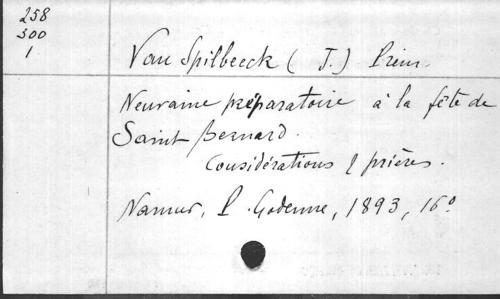 258
300
1
Van Spilbeeck (J.) Prem.
Neuvaine préparatoire à la fête de
Saint Bernard.
Considérations & prières.
Namur, P. Godenne, 1893, 16º